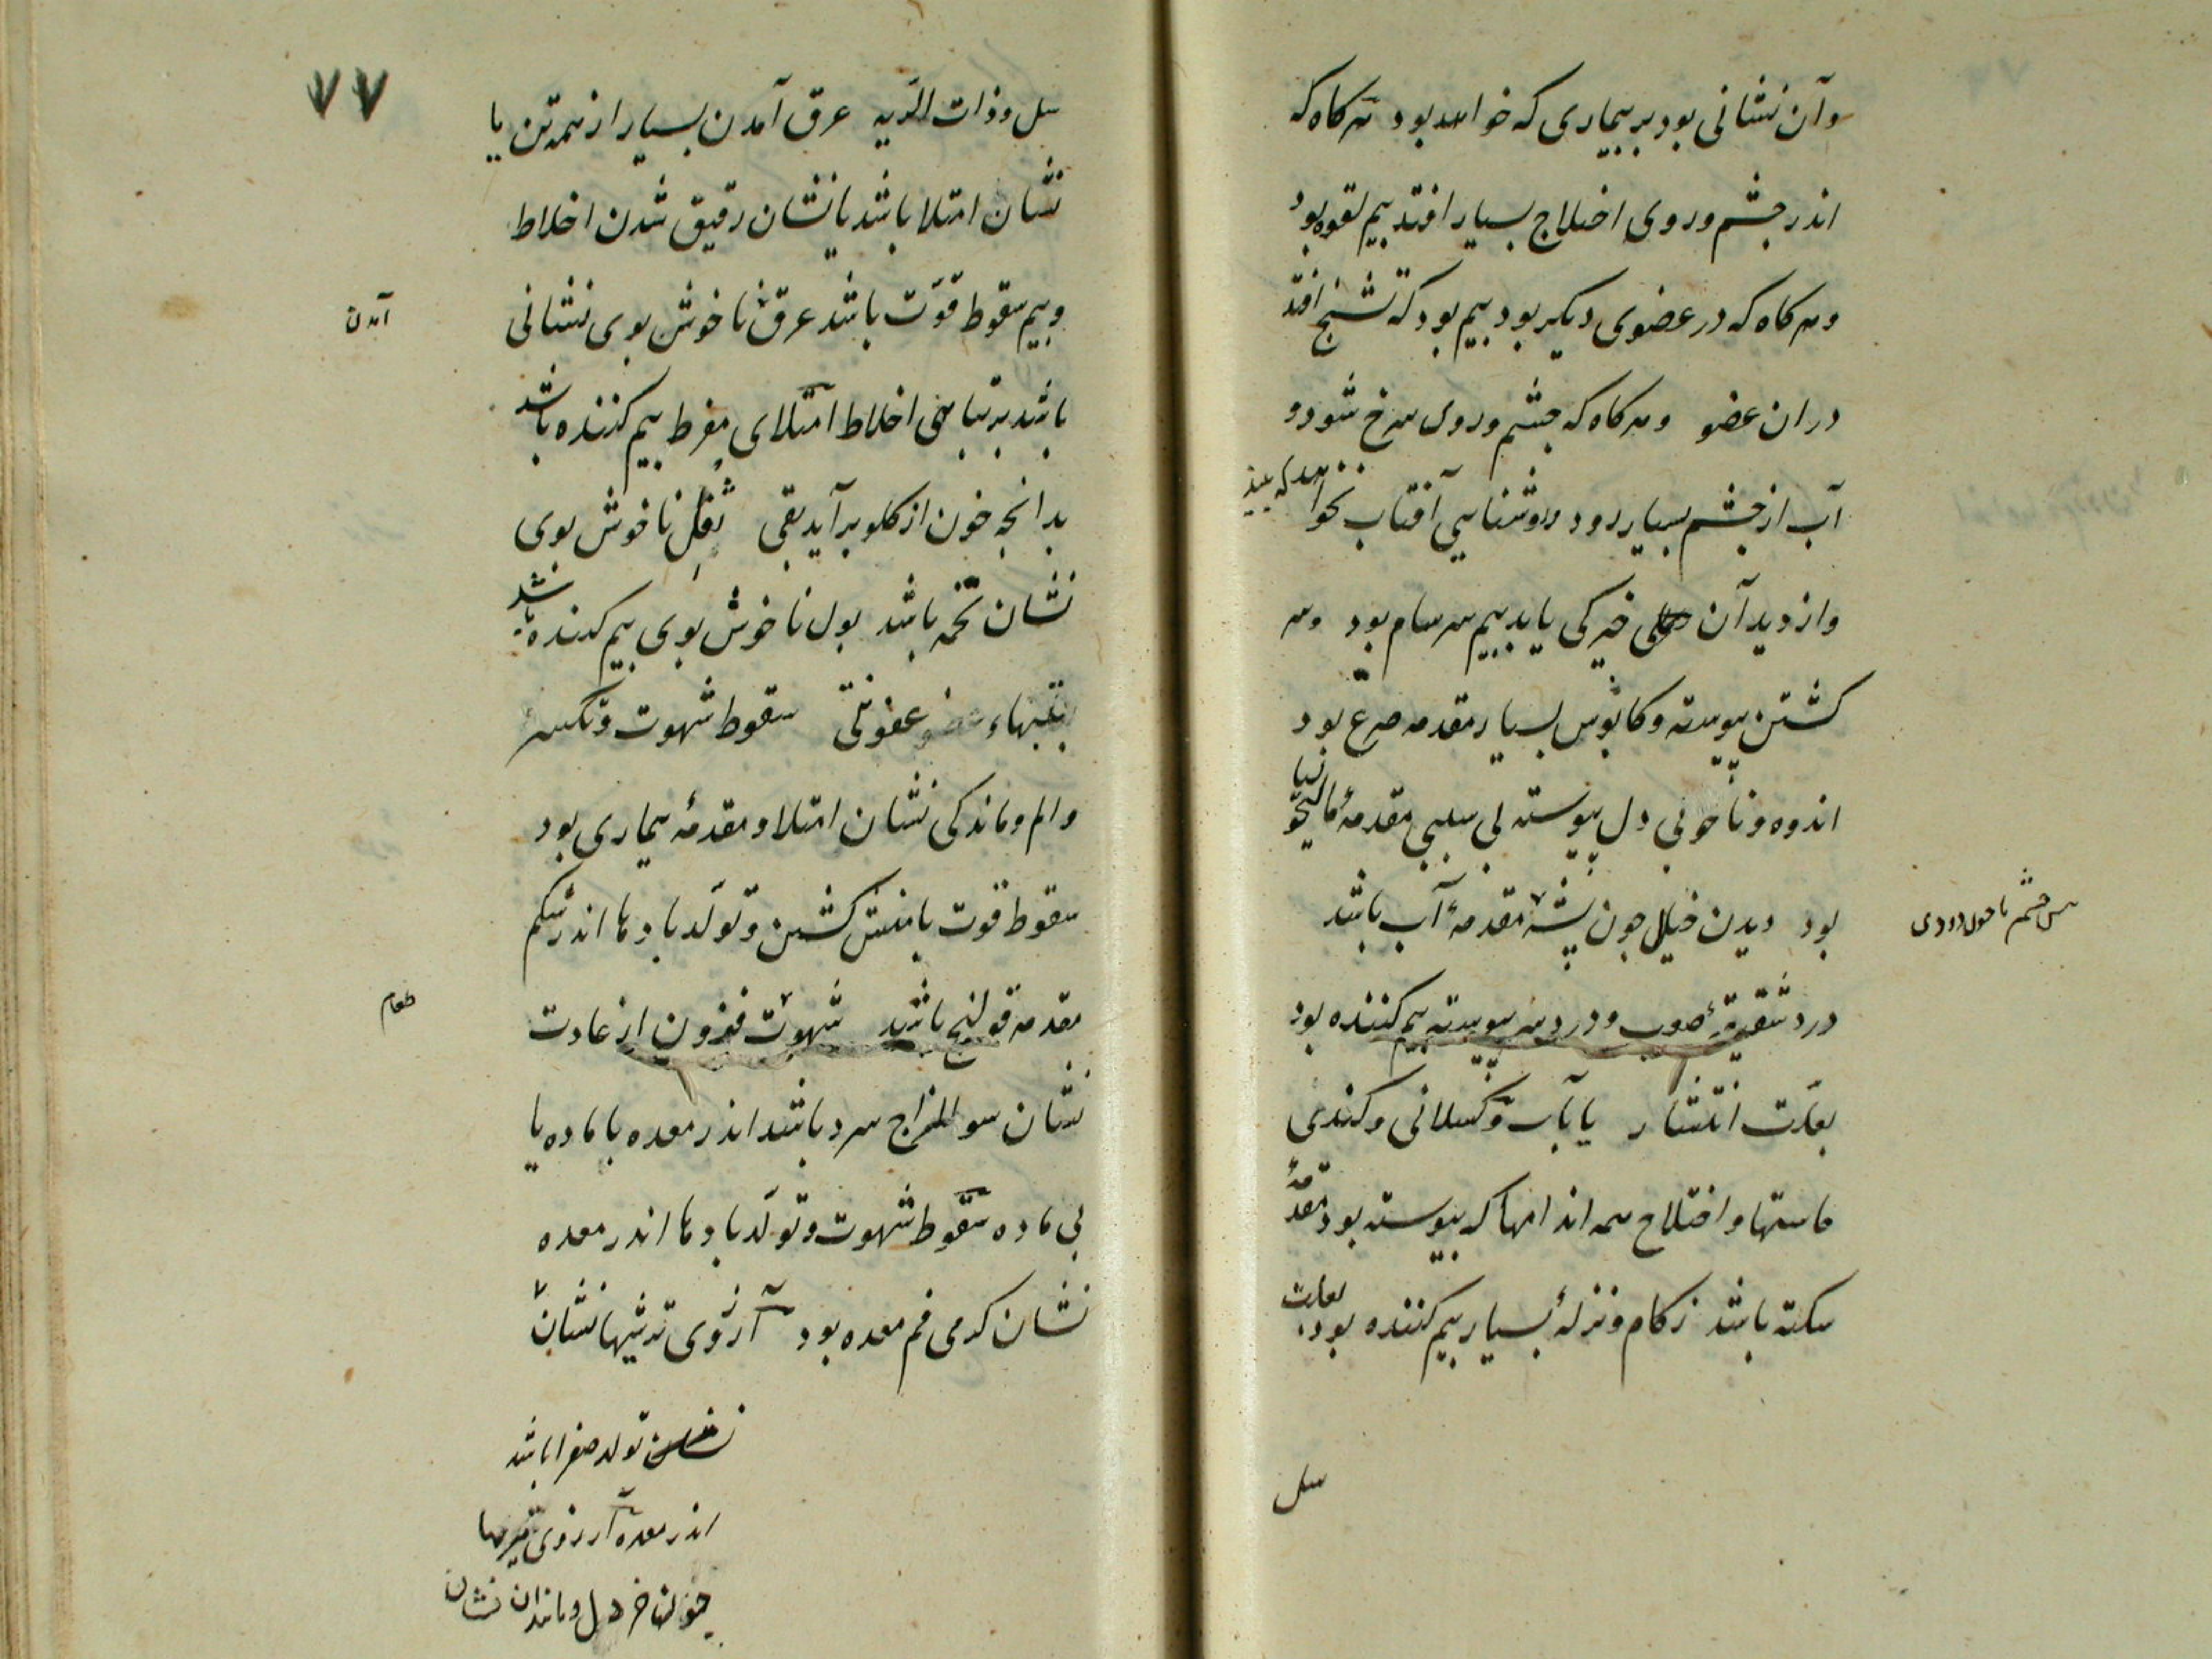 وآن نشانی بود بر بیماری که خواهد بود هر کاه که
اندر چشم وروی اختلاج بسیار افتد بیم لقوه بود
وهر کاه که در عضوی دیگر بود بیم بود که تشنج افتد
دران عضو وهر کاه که چشم وروی سرخ شود و
آب از چشم بسیار رود وروشنایی آفتاب نخواهد که بیند
واز دیدآن خیرکی یابد بیم سرسام بود وسر
کشتن پیوسته وکابوس بسیار مقدمه صرع بود
اندوه وناخوبی دل پیوسته بی سببی مقدمهٔ مالیخولیا
بود دیدن خیال جون پشه مقدمهٔ آب باشد
پیش چشم یا جون دودی
درد شقیقهٔ صعب ودرد سر پیوسته بیم کننده بود
بعلّت انتشار یا بآب وکسلانی وکندی
حاستها واختلاج همه اندامها که پیوسته بود مقدمهٔ
سکته باشد زکام ونزلهٔ بسیار بیم کننده بود بعلت
سل
۷۷
سل وذات الریه عرق آمدن بسیار از همه تن یا
نشان امتلا باشد یا نشان رقیق شدن اخلاط
وبیم سقوط قوّت باشد عرق ناخوش بوی نشانی
آمدن
باشد بر تباهی اخلاط امتلای مفرط بیم کننده باشد
بدانجه خون از کلو برآید بقی ثفل ناخوش بوی
نشان تخمه باشد بول ناخوش بوی بیم کننده باشد
بتبهاء عفونتی سقوط شهوت وتکسر
والم وماندکی نشان امتلا ومقدمهٔ بیماری بود
سقوط قوت بامنش کشتن وتولّد بادها اندر شکم
مقدمه قولنج باشد شهوت فزون از عادت
طعام
نشان سو المزاج سرد باشد اندر معده با ماده یا
بی ماده سقوط شهوت وتولّد بادها اندر معده
نشان کرمی فم معده بود آرزوی ترشیها نشان
تولد صفرا باشد
اندر معده آرزوی تیزیها
جون خردل وماندان نشان